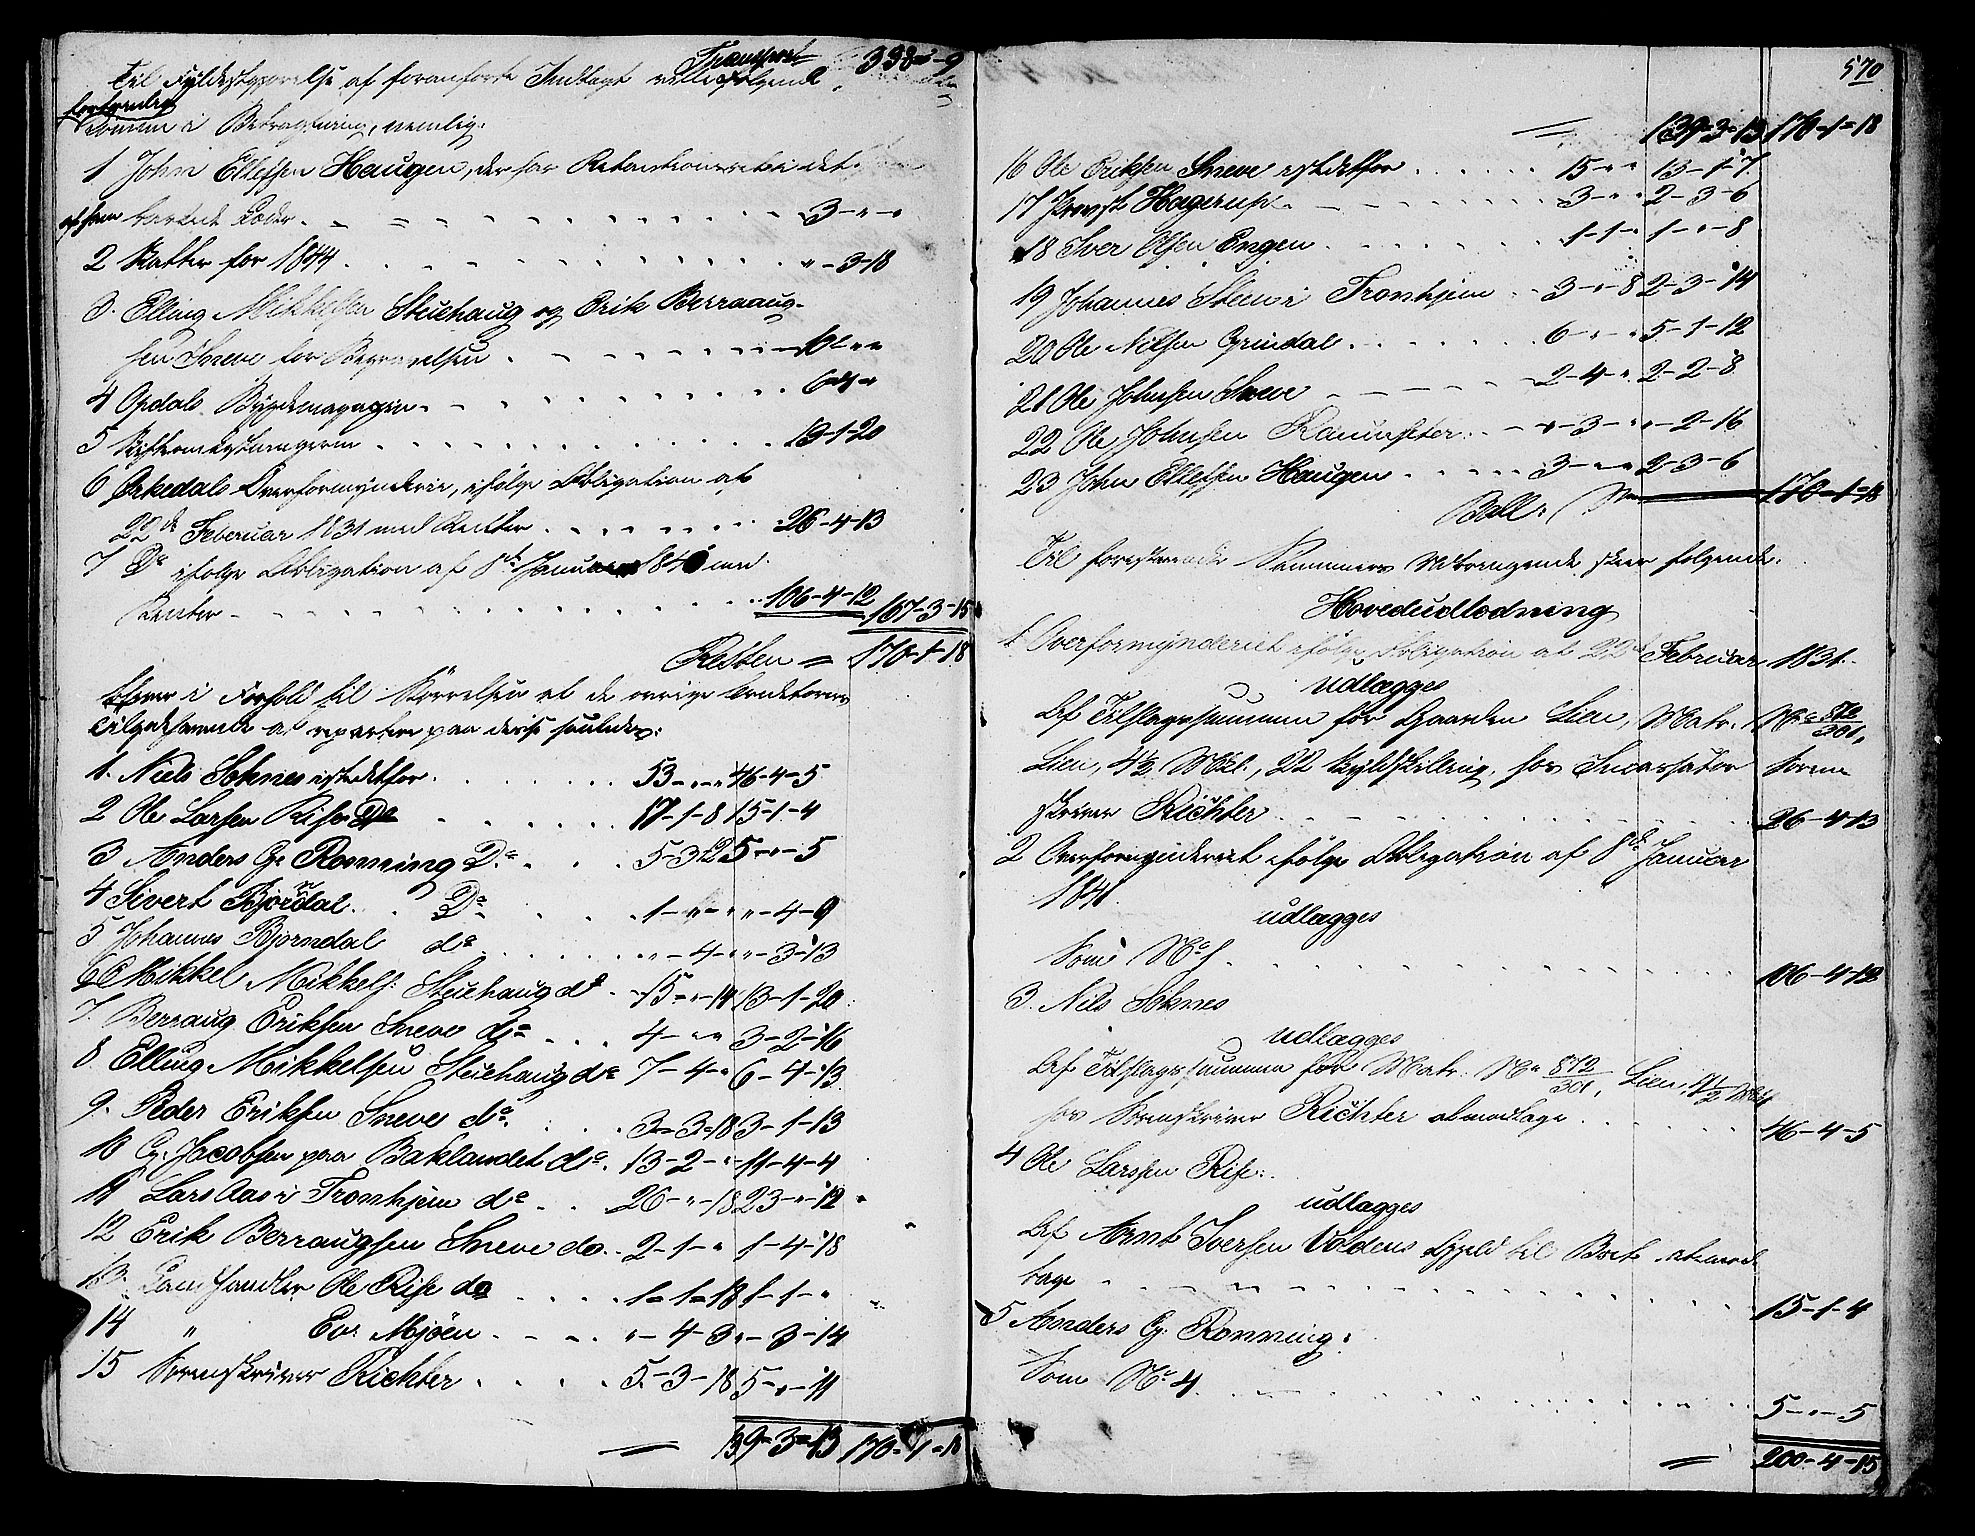 Transport 338-"-9
Til Fyldestgjørelse af foranførte Indtægt ville Følgende
fortrinlig
komme i Betragtning, nemlig:
1 John Ellefsen Haugen, der har Retentionsret i det
af ham barkede Læder 3-"-"
2 Skatter for 1844 "-3-18
3. Elling Mikkelsen Stuehaug og Erik Berraaug-
sen Sneve for Begravelsen 10-"-"
4 Opdals Bygdemagazin 6-4-"
5 Skifteomkostningerne 13-1-20
6 Orkedals Overformynderie, ifølge Obligation af
22de Februar 1831 med Renter 26-4-13
7 Do ifølge Obligation af 8de Januar 1840 med
Renter 106-4-12 167-3-15
Resten = 170-1-18
bliver i Forhold til Størrelsen af de øvrige Creditorers
Tilgodehavende at repartere paa dem saaledes:
1. Niels Soknes istedetfor 53-"-" 46-4-5
2 Ole Larsen Rise Do 17-1-8 15-1-4
3 Anders G. Rønning Do 5-3-12 5-"-5
4 Sivert Bjørndal Do 1-"-" "-4-9
5 Johannes Bjørndal do "-4-" "-3-13
6 Mikkel Mikkels: Stuehaug do 15-"-14 13-1-20
7. Berraug Eriksen Sneve do 4-"-" 3-2-16
8. Elling Mikkelsen Stuehaug do 7-4-" 6-4-13
9. Peder Eriksen Sneve do 3-3-18 3-1-13
10 G. Jacobsen paa Baklandet do 13-2-" 11-4-4
11 Lars Aas i Tronhjem do 26-"-18 23-"-12
12 Erik Berraugsen Sneve do 2-1-" 1-4-18
13. Landhandler Ole Rise do 1-1-18 1-1-"
14 " Ev. Mjøen "-4-3 "-3-14
15 Sorenskriver Richter 5-3-18 5-"-11
= 139-3-13 170-1-18
570
= 139-3-13 170-1-18
16 Ole Eriksen Sneve istedetfor 15-"-" 13-1-7
17 Provst Hagerup 3-"-" 2-3-6
18 Iver Olsen Engen 1-1-" 1-"-8
19 Johannes Steen i Tronhjem 3-"-8 2-3-14
20 Ole Nilsen Grindal 6-"-" 5-1-12
21 Ole Johnsen Sneve 2-4-" 2-2-8
22 Ole Johnsen Raunseter "-3-" "-2-16
23 John Ellefsen Haugen 3-"-" 2-3-6
170-1-18
Til forestaaende Summers Udbringende skeer følgende
Hovedudlodning
1 Overformynderiet ifølge Obligation af 22de Februar 1831
Udlægges
Af Tilslagssummen for Gaarden Lien, Matr. No 872/301,
Lien, 4½ Mkl., 22 Bygselskilling, hos Incassator Soren-
skriver Richter 26-4-13
2 Overformynderiet ifølge Obligation af 8de Januar
1841
udlægges
Som No 1 106-4-12
3. Nils Soknes
udlægges
Af Tilslagssummen for Matr. No 872/301, Lien, 4½ Mkl
hos Sorenskriver Richter at modtage 46-4-5
4 Ole Larsen Rise
udlægges
Af Arnt Iversen Voldens Gjeld til Boet at mod-
tage 15-1-4
5 Anders G. Rønning
Som No 4 5-"-5
= 200-4-15